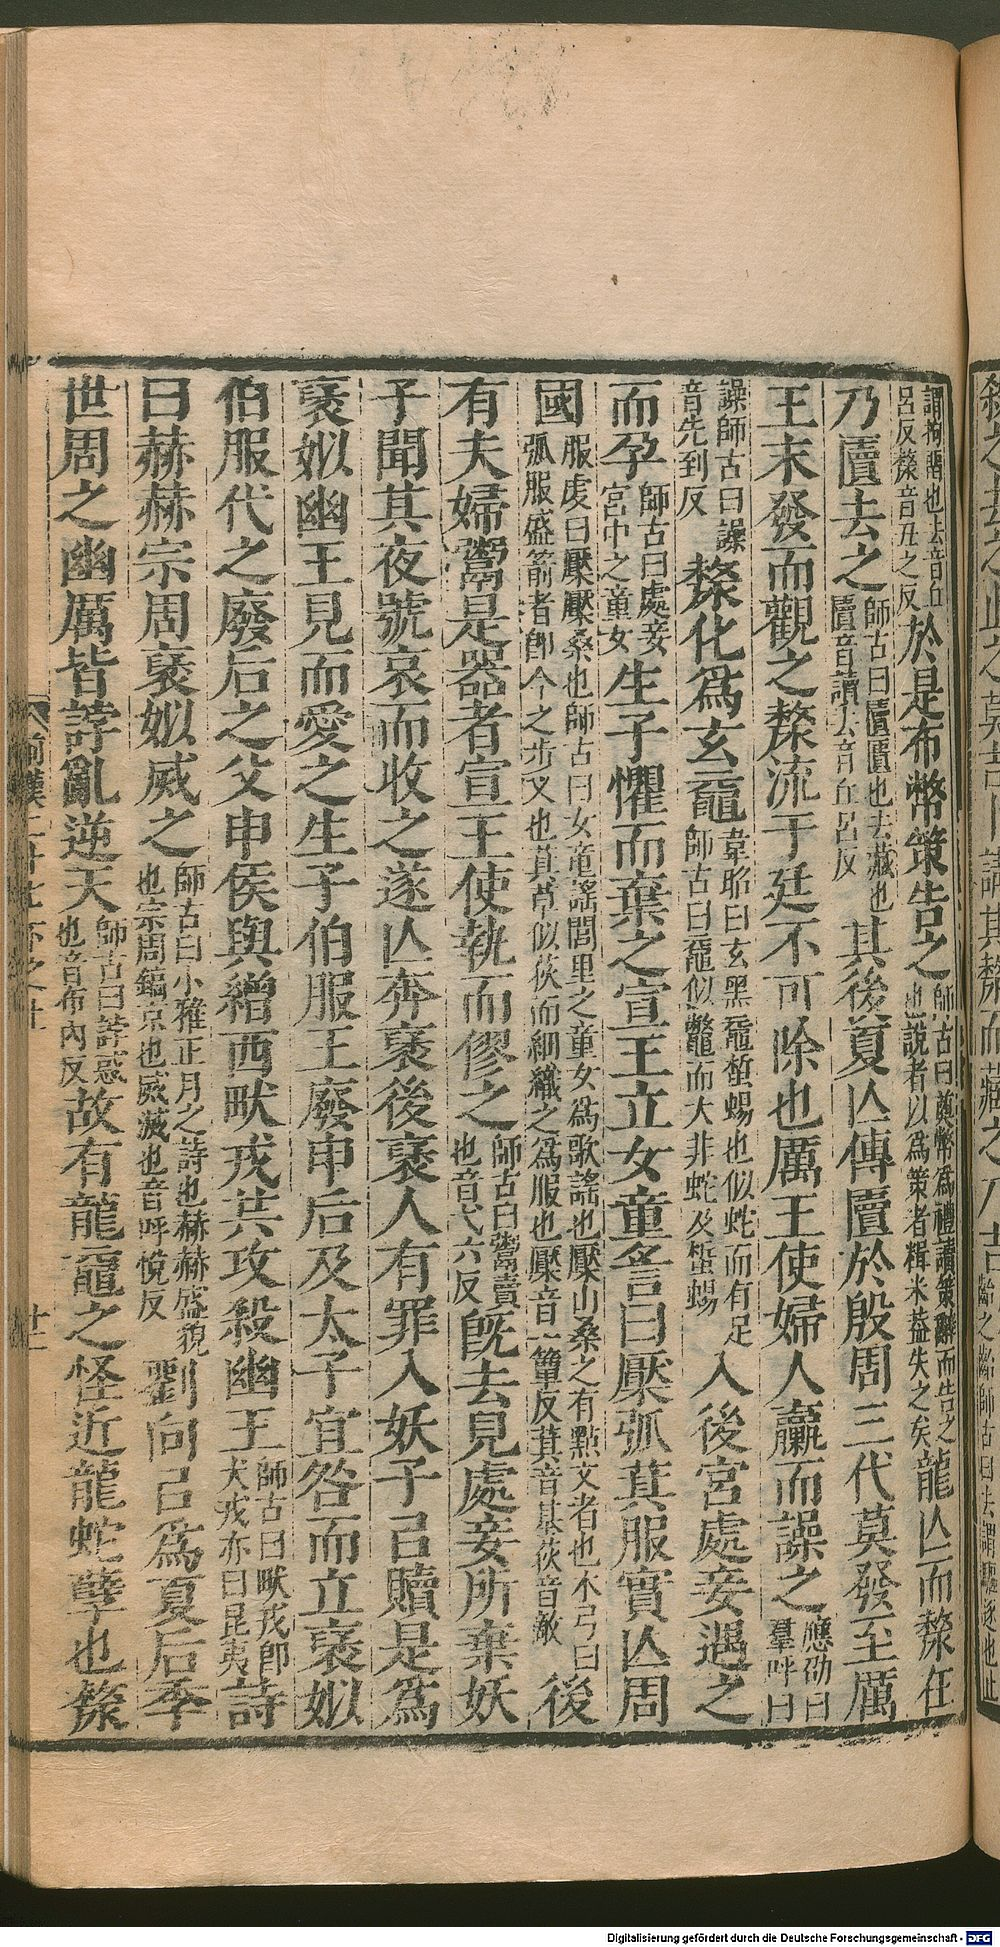 謂拘留也去音丘呂反漦音丑之反於是布幣策告之師古曰奠幣爲禮讀策辭而告之也說者以爲策者糈米葢失之矣龍亾而漦在
乃匵去之師古曰匵匱也去藏也匵音讀去音丘呂反其後夏亾傳匵於殷周三代莫發至厲
王末發而觀之漦流于廷不可除也厲王使婦人臝而譟之應劭曰羣呼曰
譟師古曰譟音先到反漦化爲玄黿韋昭曰玄黑黿蜥蜴也似蛇而有足師古曰黿似鼈而大非蛇及蜥蜴入後宮處妾遇之
而孕師古曰處妾宮中之童女生子懼而棄之宣王立女童謠曰檿弧萁服實亾周
國服虔曰檿檿桑也師古曰女童謠閭里之童女爲歌謠也檿山桑之有點文者也木弓曰弧服盛箭者即今之步叉也萁草似荻而細織之爲服也檿音一簟反萁音基荻音敵後
有夫婦鬻是器者宣王使執而僇之師古曰鬻賣也音弋六反旣去見處妾所棄妖
子聞其夜號哀而收之遂亾奔襃後襃人有罪入妖子已贖是爲
襃姒幽王見而愛之生子伯服王廢申后及太子宜咎而立襃姒
伯服代之廢后之父申侯與繒西畎戎共攻殺幽王師古曰畎戎即犬戎亦曰昆夷詩
曰赫赫宗周襃姒威之師古曰小雅正月之詩也赫赫盛貌也宗周鎬京也威滅也音呼悅反劉向已爲夏后季
世周之幽厲皆誖亂逆天師古曰誖惑也音布內反故有龍黿之怪近龍蛇孽也漦
前漢二十七下之上
廿二
Digitalisierung gefördert durch die Deutsche Forschungsgemeinschaft - DFG